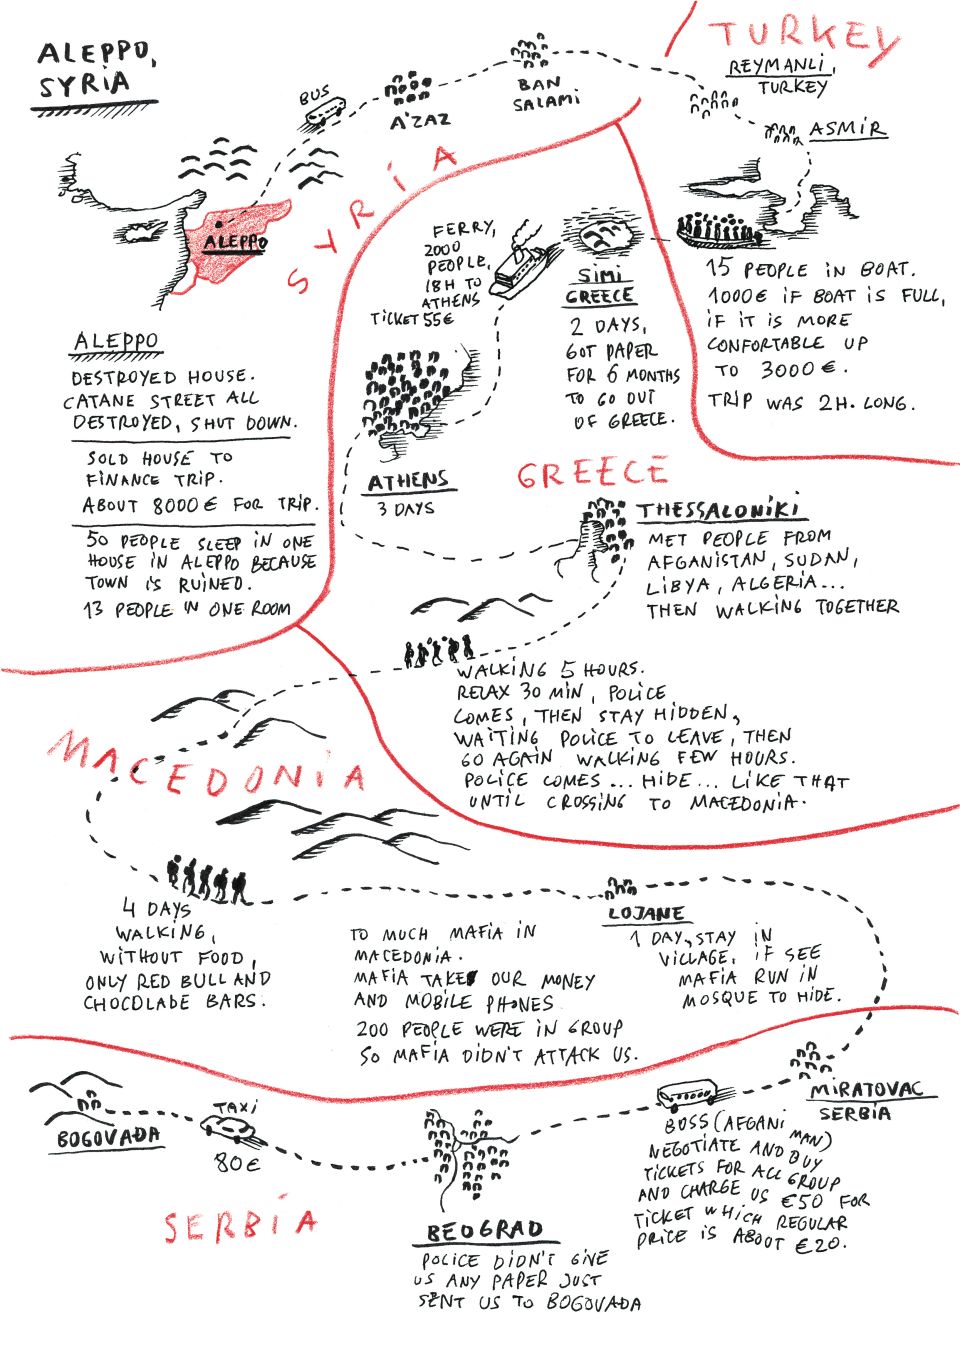 ALEPPO,
SYRIA
BUS
A'ZAZ
BAN
SALAMI
TURKEY
REYMANLI,
TURKEY
ASMIR
SYRIA
ALEPPO
FERRY,
2000
PEOPLE,
18H TO
ATHENS
TICKET 55€
SIMI
GREECE
2 DAYS,
GOT PAPER
FOR 6 MONTHS
TO GO OUT
OF GREECE.
15 PEOPLE IN BOAT.
1000€ IF BOAT IS FULL,
IF IT IS MORE
CONFORTABLE UP
TO 3000€.
TRIP WAS 2H. LONG.
ALEPPO
DESTROYED HOUSE.
CATANE STREET ALL
DESTROYED, SHUT DOWN.
SOLD HOUSE TO
FINANCE TRIP.
ABOUT 8000€ FOR TRIP.
50 PEOPLE SLEEP IN ONE
HOUSE IN ALEPPO BECAUSE
TOWN IS RUINED.
13 PEOPLE IN ONE ROOM
ATHENS
3 DAYS
GREECE
THESSALONIKI
MET PEOPLE FROM
AFGANISTAN, SUDAN,
LIBYA, ALGERIA...
THEN WALKING TOGETHER
WALKING 5 HOURS.
RELAX 30 MIN, POLICE
COMES, THEN STAY HIDDEN,
WAITING POLICE TO LEAVE, THEN
GO AGAIN WALKING FEW HOURS.
POLICE COMES... HIDE... LIKE THAT
UNTIL CROSSING TO MACEDONIA.
MACEDONIA
4 DAYS
WALKING,
WITHOUT FOOD,
ONLY RED BULL AND
CHOCOLADE BARS.
TO MUCH MAFIA IN
MACEDONIA.
MAFIA TAKE OUR MONEY
AND MOBILE PHONES
200 PEOPLE WERE IN GROUP
SO MAFIA DIDN'T ATTACK US.
LOJANE
1 DAY, STAY IN
VILLAGE, IF SEE
MAFIA RUN IN
MOSQUE TO HIDE.
MIRATOVAC
SERBIA
BUSS (AFGANI MAN)
NEGOTIATE AND BUY
TICKETS FOR ALL GROUP
AND CHARGE US €50 FOR
TICKET WHICH REGULAR
PRICE IS ABOUT €20.
BEOGRAD
POLICE DIDN'T GIVE
US ANY PAPER JUST
SENT US TO BOGOVAĐA
TAXI
80€
BOGOVAĐA
SERBIA